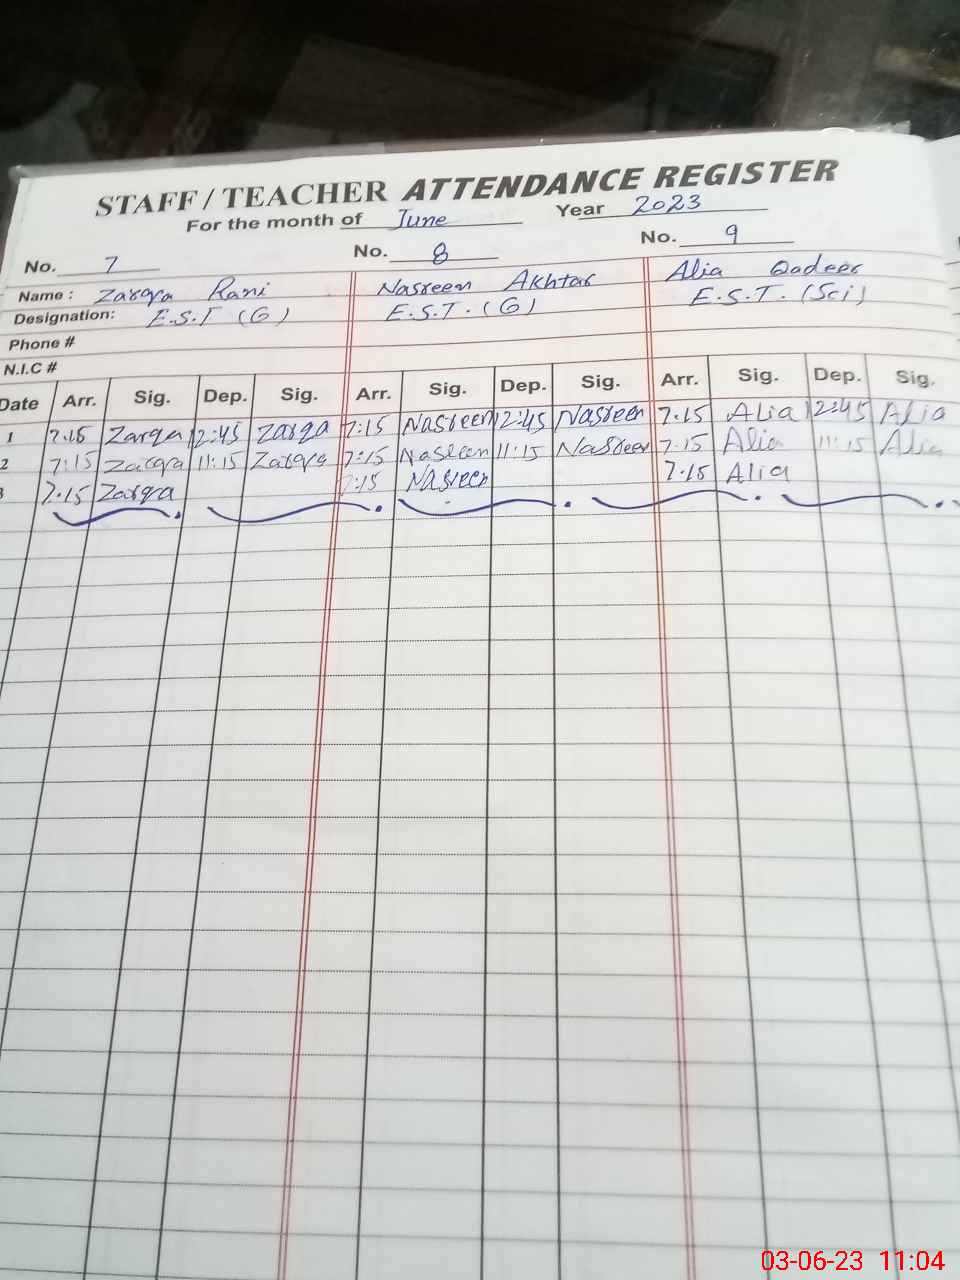 STAFF / TEACHER ATTENDANCE REGISTER
For the month of June Year 2023
No. 7 No. 8 No. 9
Name : Zarqa Rani Nasreen Akhtar Alia Qadeer
Designation: E.S.T (G) E.S.T. (G) E.S.T. (Sci)
Phone #
N.I.C #
Date Arr. Sig. Dep. Sig. Arr. Sig. Dep. Sig. Arr. Sig. Dep. Sig.
1 7:15 Zarqa 12:45 Zarqa 7:15 Nasreen 12:45 Nasreen 7:15 Alia 12:45 Alia
2 7:15 Zarqa 11:15 Zarqa 7:15 Nasreen 11:15 Nasreen 7:15 Alia 11:15 Alia
3 7:15 Zarqa 7:15 Nasreen 7:15 Alia
03-06-23 11:04